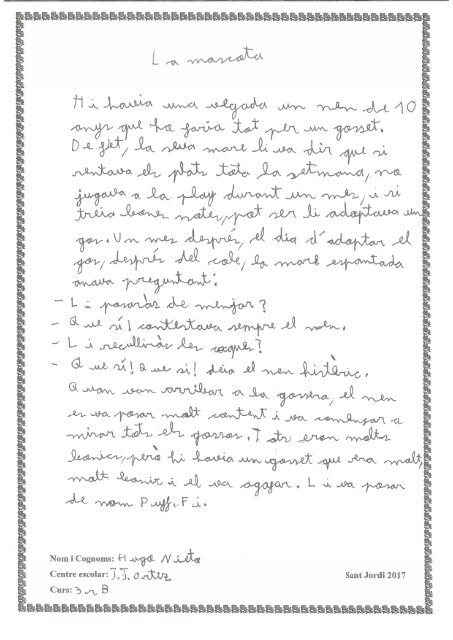 La mascota
Hi havia una vegada un nen de 10
anys que ho faria tot per un gosset.
De fet, la seva mare li va dir que si
rentava els plats tota la setmana, no
jugava a la play durant un mes, i si
treia bones notes, pot ser li adoptava un
gos. Un mes després, el dia d'adoptar el
gos, després del cole, la mare espantada
anava preguntant:
- Li posaràs de menjar?
- Que sí! contestava sempre el nen.
- Li recolliràs les caques?
- Que sí! Que si! deia el nen histèric.
Quan van arribar a la gossera, el nen
es va posar molt content i va començar a
mirar tots els gossos. Tots eren molts
bonics, però hi havia un gosset que era molt,
molt bonic i el va agafar. Li va posar
de nom Puff. Fi.
Nom i Cognoms: Hugo Nieto
Centre escolar: J.J. Ortiz
Sant Jordi 2017
Curs: 3r B